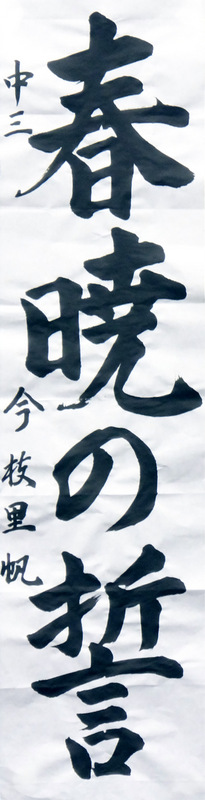 春暁の誓
中三 今枝里帆